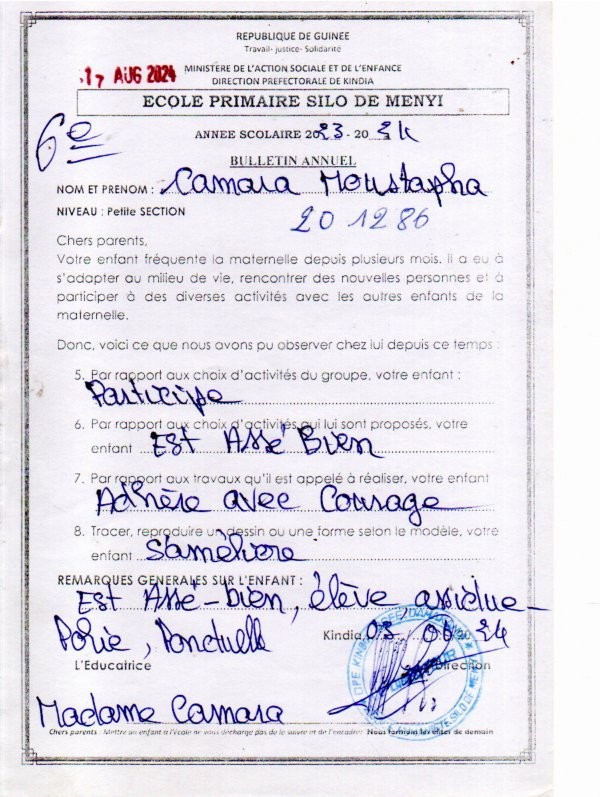 REPUBLIQUE DE GUINEE
Travail- justice- Solidarité
17 AUG 2024
MINISTERE DE L'ACTION SOCIALE ET DE L'ENFANCE
DIRECTION PREFECTORALE DE KINDIA
ECOLE PRIMAIRE SILO DE MENYI
6e
ANNEE SCOLAIRE 2023-2024
BULLETIN ANNUEL
NOM ET PRENOM : Camara Moustapha
NIVEAU : Petite SECTION
201286
Chers parents,
Votre enfant fréquente la maternelle depuis plusieurs mois. Il a eu à
s'adapter au milieu de vie, rencontrer des nouvelles personnes et à
participer à des diverses activités avec les autres enfants de la
maternelle.
Donc, voici ce que nous avons pu observer chez lui depuis ce temps :
5. Par rapport aux choix d'activités du groupe, votre enfant :
Participe
6. Par rapport aux choix d'activités qui lui sont proposés, votre
enfant Est Assé Bien
7. Par rapport aux travaux qu'il est appelé à réaliser, votre enfant
Adhère avec Courage
8. Tracer, reproduire un dessin ou une forme selon le modèle, votre
enfant s'améliore
REMARQUES GENERALES SUR L'ENFANT :
Est Assé-bien, élève assidue-
Polie, Ponctuelle
Kindia, 03 2024
L'Educatrice
Direction
Madame Camara
Chers parents : Mettre un enfant à l'école ne vous décharge pas de le suivre et de l'encadrer Nous formons les élites de demain